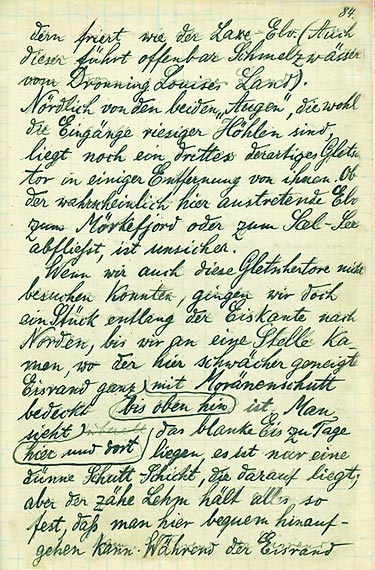 84.
dern friert wie der Laxe-Elv. (Auch
dieser führt offenbar Schmelzwässer
vom Dronning Louises Land).
Nördlich von den beiden „Augen", die wohl
die Eingänge riesiger Höhlen sind,
liegt noch ein drittes derartiges Glets-
tor in einiger Entfernung von ihnen. Ob
der wahrscheinlich hier austretende Elv
zum Mörkefjord oder zum Sal-See
abfließt, ist unsicher.
Wenn wir auch diese Gletschertore nicht
besuchen konnten, gingen wir doch
ein Stück entlang der Eiskante nach
Norden, bis wir an eine Stelle ka-
men, wo der hier schwächer geneigte
Eisrand ganz mit Moränenschutt
bedeckt bis oben hin ist. Man
sieht überall das blanke Eis zu Tage
hier und dort liegen, es ist nur eine
dünne Schutt-Schicht, die darauf liegt;
aber der zähe Lehm hält alles so
fest, daß man hier bequem hinauf-
gehen kann. Während der Eisrand